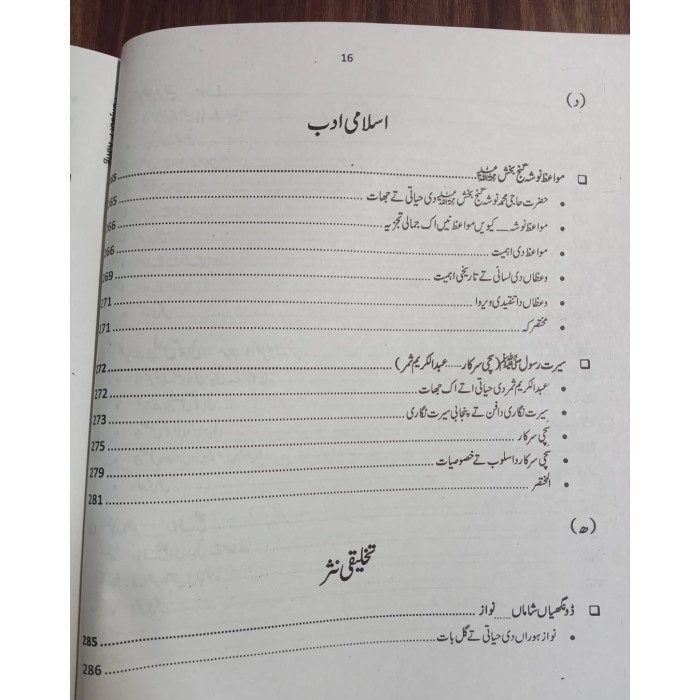 16
(د)
اسلامی ادب
مواعظ نوشہ گنج بخش ﷫ ........ 265
حضرت حاجی محمد نوشہ گنج بخش ﷫ دی حیاتی تے جھات ........ 265
مواعظ نوشہ __ کیویں مواعظ نیں اک جمالی تجزیہ ........ 266
مواعظ دی اہمیت ........ 266
وعظاں دی لسانی تے تاریخی اہمیت ........ 269
وعظاں دا تنقیدی ویروا ........ 271
مختصر کہ ........ 271
سیرت رسول ﷺ (سچی سرکار ..... عبدالکریم ثمر) ........ 272
عبدالکریم ثمر دی حیاتی اتے اک جھات ........ 272
سیرت نگاری دا فن تے پنجابی سیرت نگاری ........ 273
سچی سرکار ........ 275
سچی سرکار دا اسلوب تے خصوصیات ........ 279
المختصر ........ 281
(ھ)
تخلیقی نثر
ڈونگھیاں شاماں ..... نواز ........ 285
نواز ہوراں دی حیاتی تے گل بات ........ 286